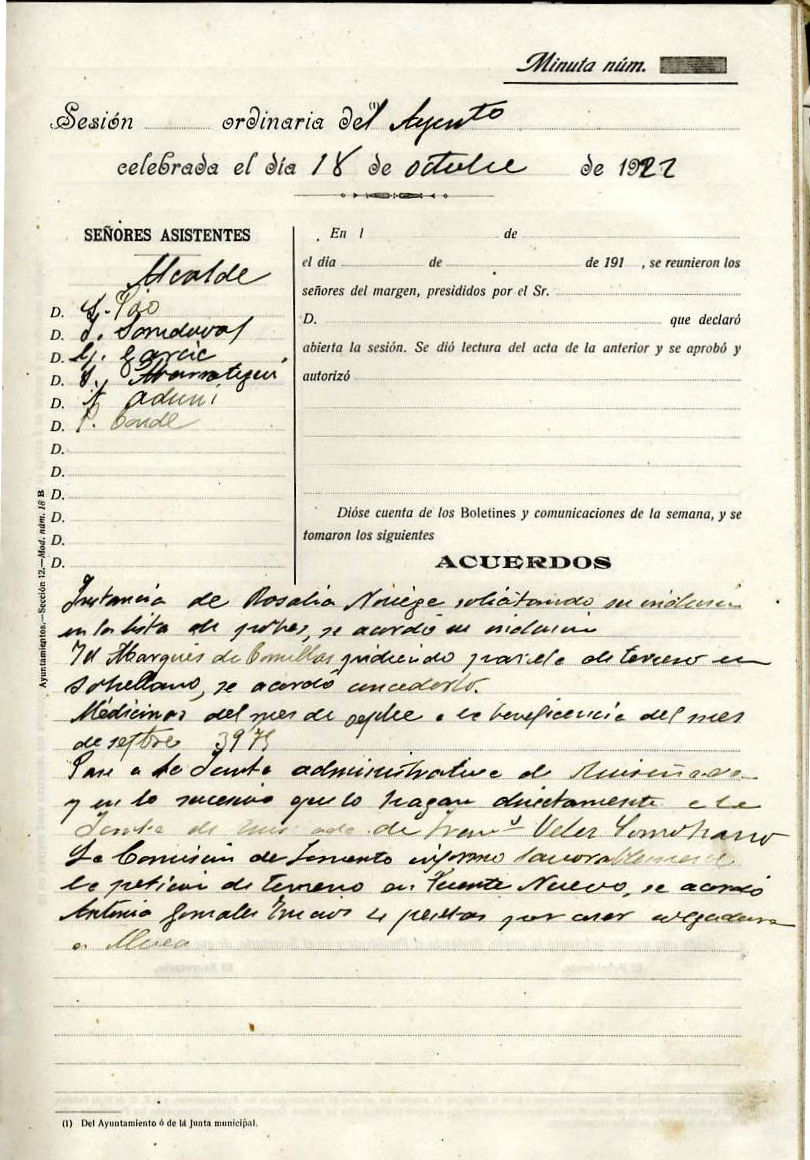 Minuta núm.
Sesión ordinaria del (1) Aynto
celebrada el día 18 de octubre de 1922
SEÑORES ASISTENTES
Alcalde
D. Pio
D. J. Sandoval
D. G. Garcia
D.
D. A. Aduni
D. P. Conde
D.
D.
D.
D.
D.
D.
En l de
el día de de 191 , se reunieron los
señores del margen, presididos por el Sr.
D. que declaró
abierta la sesión. Se dió lectura del acta de la anterior y se aprobó y
autorizó
Dióse cuenta de los Boletines y comunicaciones de la semana, y se
tomaron los siguientes
ACUERDOS
Instancia de Rosalia Noriega solicitando su inclusion
en la lista de pobres, se acordó su inclusion
Id Marques de Comillas pidiendo parcela de terreno en
Sobrellano, se acordó concederlo.
Medicinas del mes de a la beneficencia del mes
de septbre 3975
Pase a la Junta administrativa de Ruiseñada
y en lo sucesivo que lo hagan directamente a la
Junta de de Franco Velez
La Comision de Fomento informo favorablemente
la peticion de terreno en Fuente Nueva, se acordó
Antonio Gonzalez 4 pesetas por
a
Ayuntamientos.—Sección 12.—Mod. núm. 18 B
(1) Del Ayuntamiento ó de la Junta municipal.